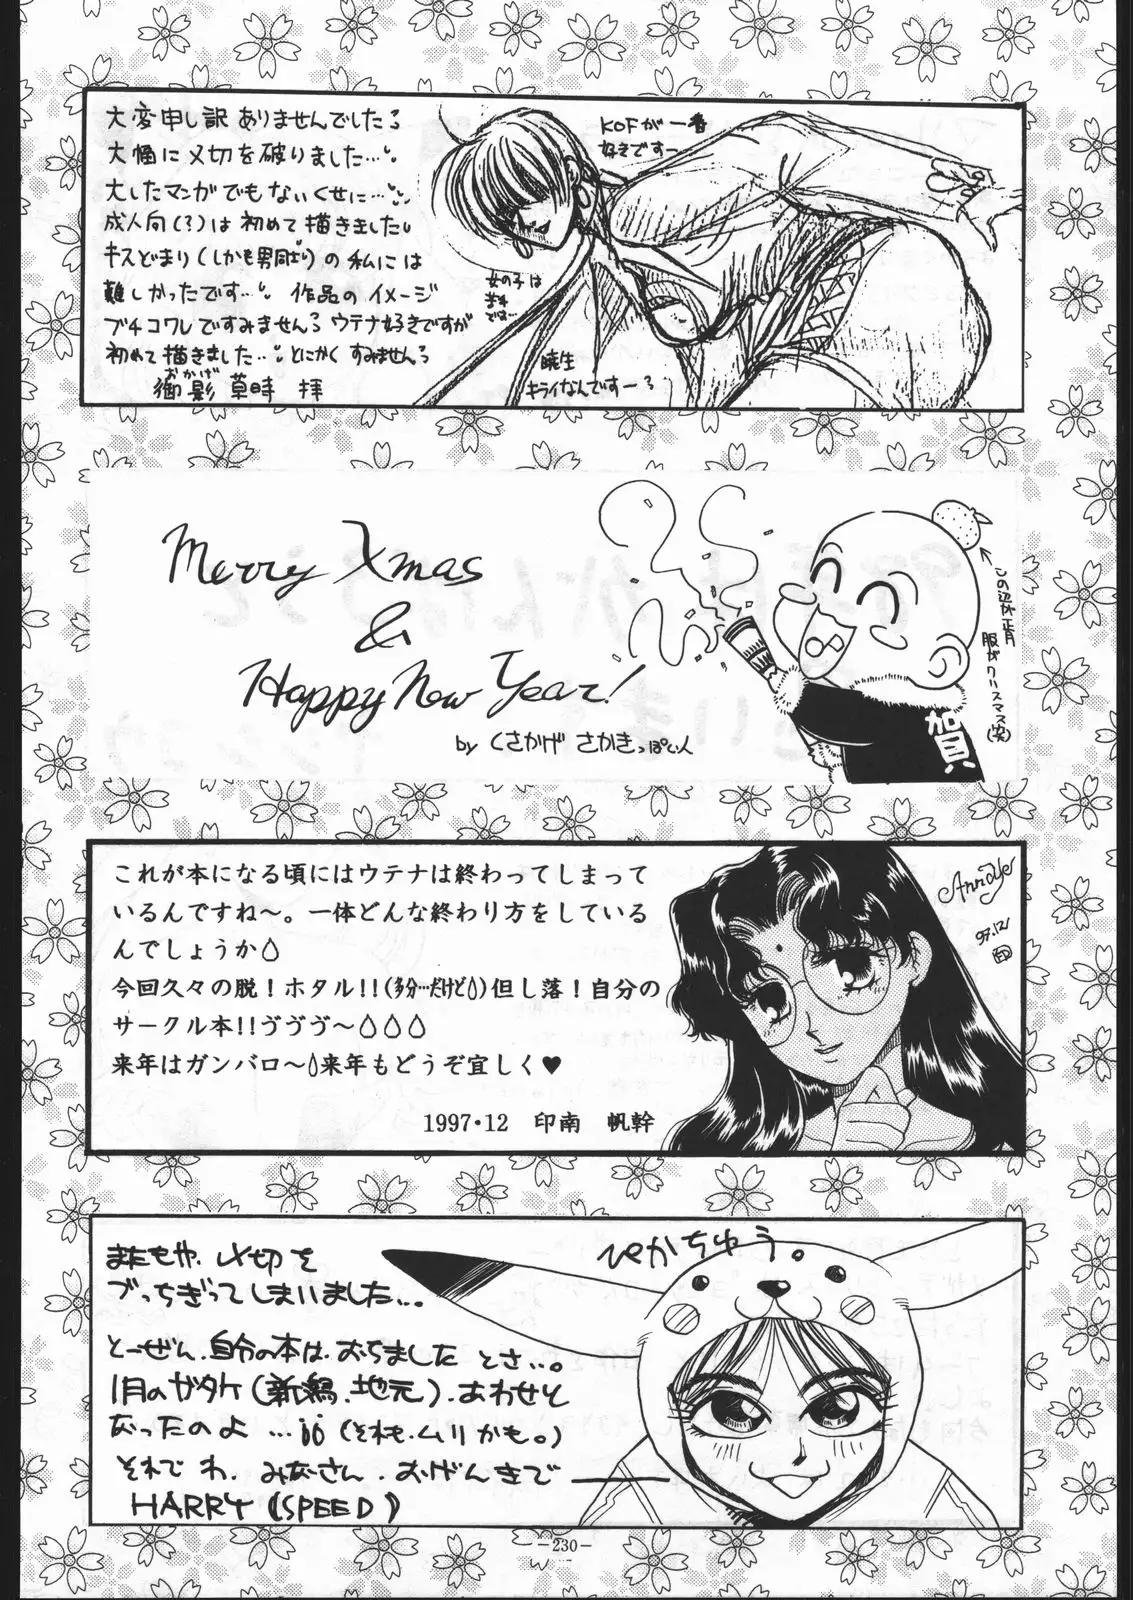 大変申し訳ありませんでした
大幅に〆切を破りました…
大したマンガでもないくせに…
成人向(?)は初めて描きました
キスどまり(しかも男同士)の私には
難しかったです… 作品のイメージ
ブチコワしですみません ウテナ好きですが
初めて描きました… とにかくすみません
草時 拝
KOFが一番
好きですー
女の子は
暁生
キライなんですー
Merry Xmas
&
Happy New Year!
by くさかげ さかきっぽい人
この辺が正月
服がクリスマス(笑)
賀
これが本になる頃にはウテナは終わってしまって
いるんですね〜。一体どんな終わり方をしている
んでしょうか
今回久々の脱!ホタル!!(多分…だけど)但し落!自分の
サークル本!!ヴヴヴ〜
来年はガンバロ〜来年もどうぞ宜しく♥
1997・12 印南 帆幹
97.12/
またもや、〆切を
ブっちぎってしまいました...
とーぜん、自分の本は、おちました とさ...。
1月のガタケ(新潟、地元)、あわせと
なったのよ ...(それも、ムリかも。)
それでわ、みなさん、おげんきで
HARRY (SPEED)
ぴかちゅう。
-230-